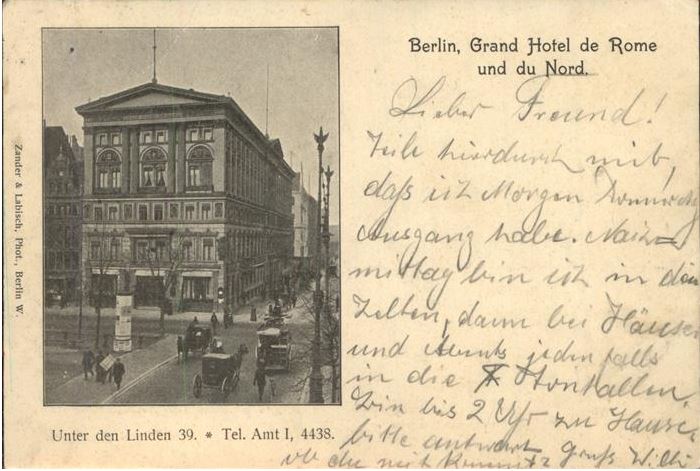 Berlin, Grand Hotel de Rome
und du Nord.
Lieber Freund!
Teile hierdurch mit,
daß ich Morgen
Ausgang habe.
mittag bin ich in den
Zelten, dann bei Häuser
und Abends jedenfalls
in die
bin bis 2 Uhr zu Hause
bitte antwort Gruß Willi
ob du mit kommst
Zander & Labisch, Phot., Berlin W.
Unter den Linden 39. * Tel. Amt I, 4438.